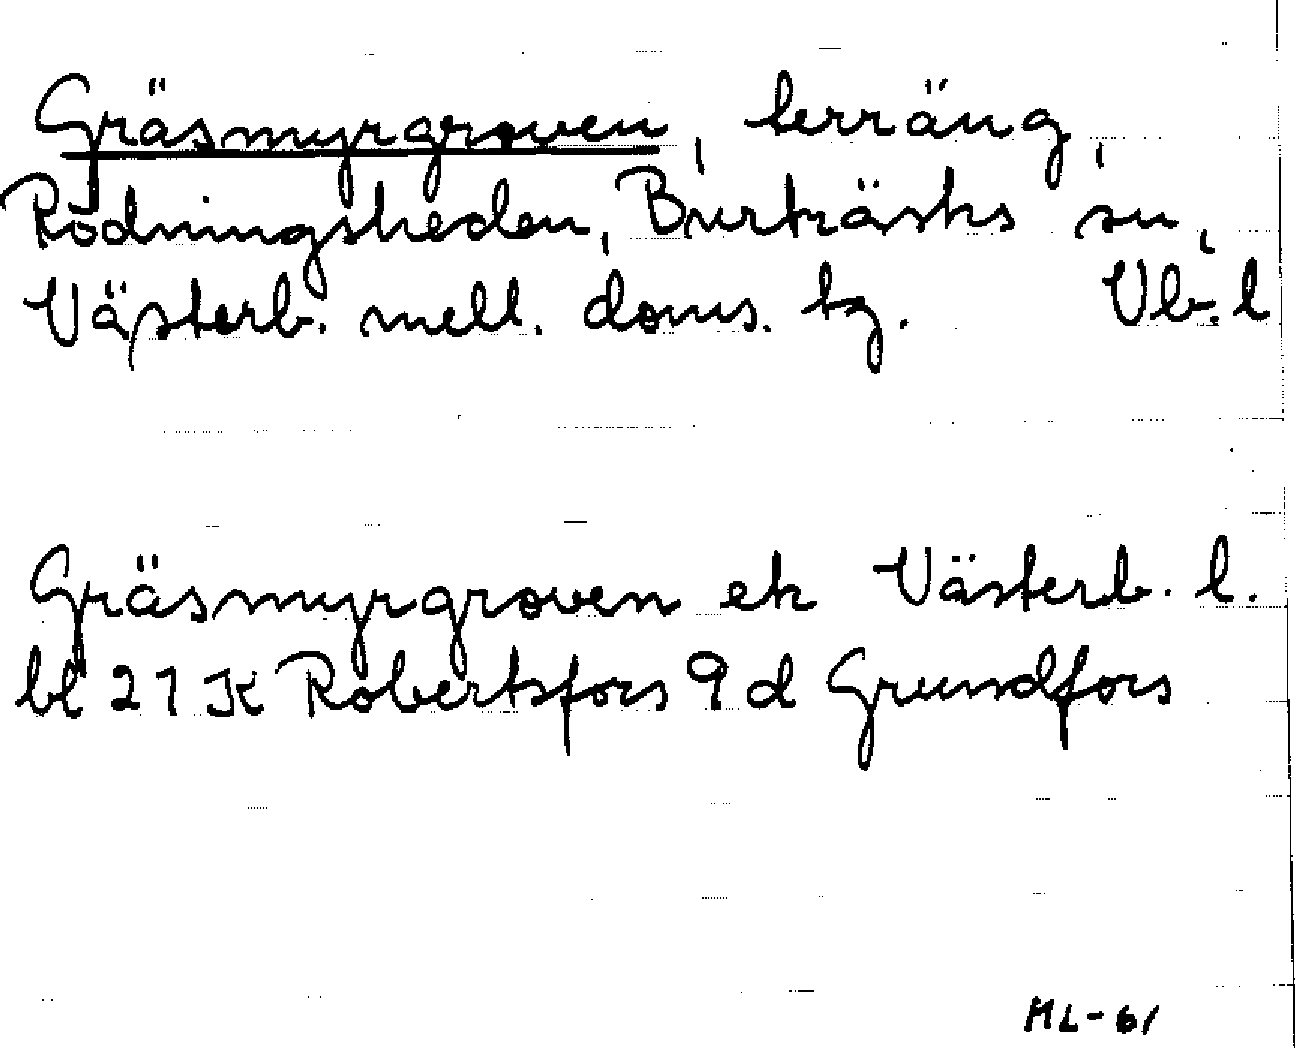 Gräsmyrgroven, terräng,
Rödningsheden, Burträsks sn,
Västerb. mell. doms. tg. Vb. l
Gräsmyrgroven ek Västerb. l.
bl 21 K Robertsfors 9 d Grundfors
ML-61